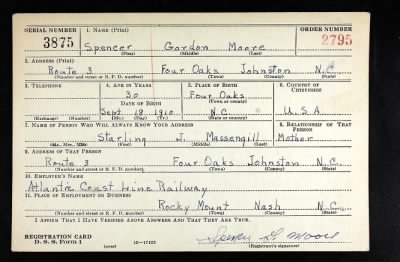 SERIAL NUMBER 1. NAME (Print) ORDER NUMBER
3875 Spencer Gordon Moore 2795
(First) (Middle) (Last)
2. ADDRESS (Print)
Route 3 Four Oaks Johnston N.C.
(Number and street or R. F. D. number) (Town) (County) (State)
3. TELEPHONE 4. AGE IN YEARS 5. PLACE OF BIRTH 6. COUNTRY OF CITIZENSHIP
30 Four Oaks
DATE OF BIRTH (Town or county)
Sept 18 1910 N.C. U.S.A
(Exchange) (Number) (Mo.) (Day) (Yr.) (State or country)
7. NAME OF PERSON WHO WILL ALWAYS KNOW YOUR ADDRESS 8. RELATIONSHIP OF THAT PERSON
Starling J. Massengill Mother
(Mr., Mrs., Miss) (First) (Middle) (Last)
9. ADDRESS OF THAT PERSON
Route 3 Four Oaks Johnston N.C.
(Number and street or R. F. D. number) (Town) (County) (State)
10. EMPLOYER'S NAME
Atlantic Coast Line Railway
11. PLACE OF EMPLOYMENT OR BUSINESS
Rocky Mount Nash N.C.
(Number and street or R. F. D. number) (Town) (County) (State)
I AFFIRM THAT I HAVE VERIFIED ABOVE ANSWERS AND THAT THEY ARE TRUE.
REGISTRATION CARD
D. S. S. Form 1 (over) 16—17105 Moore
(Registrant's signature)